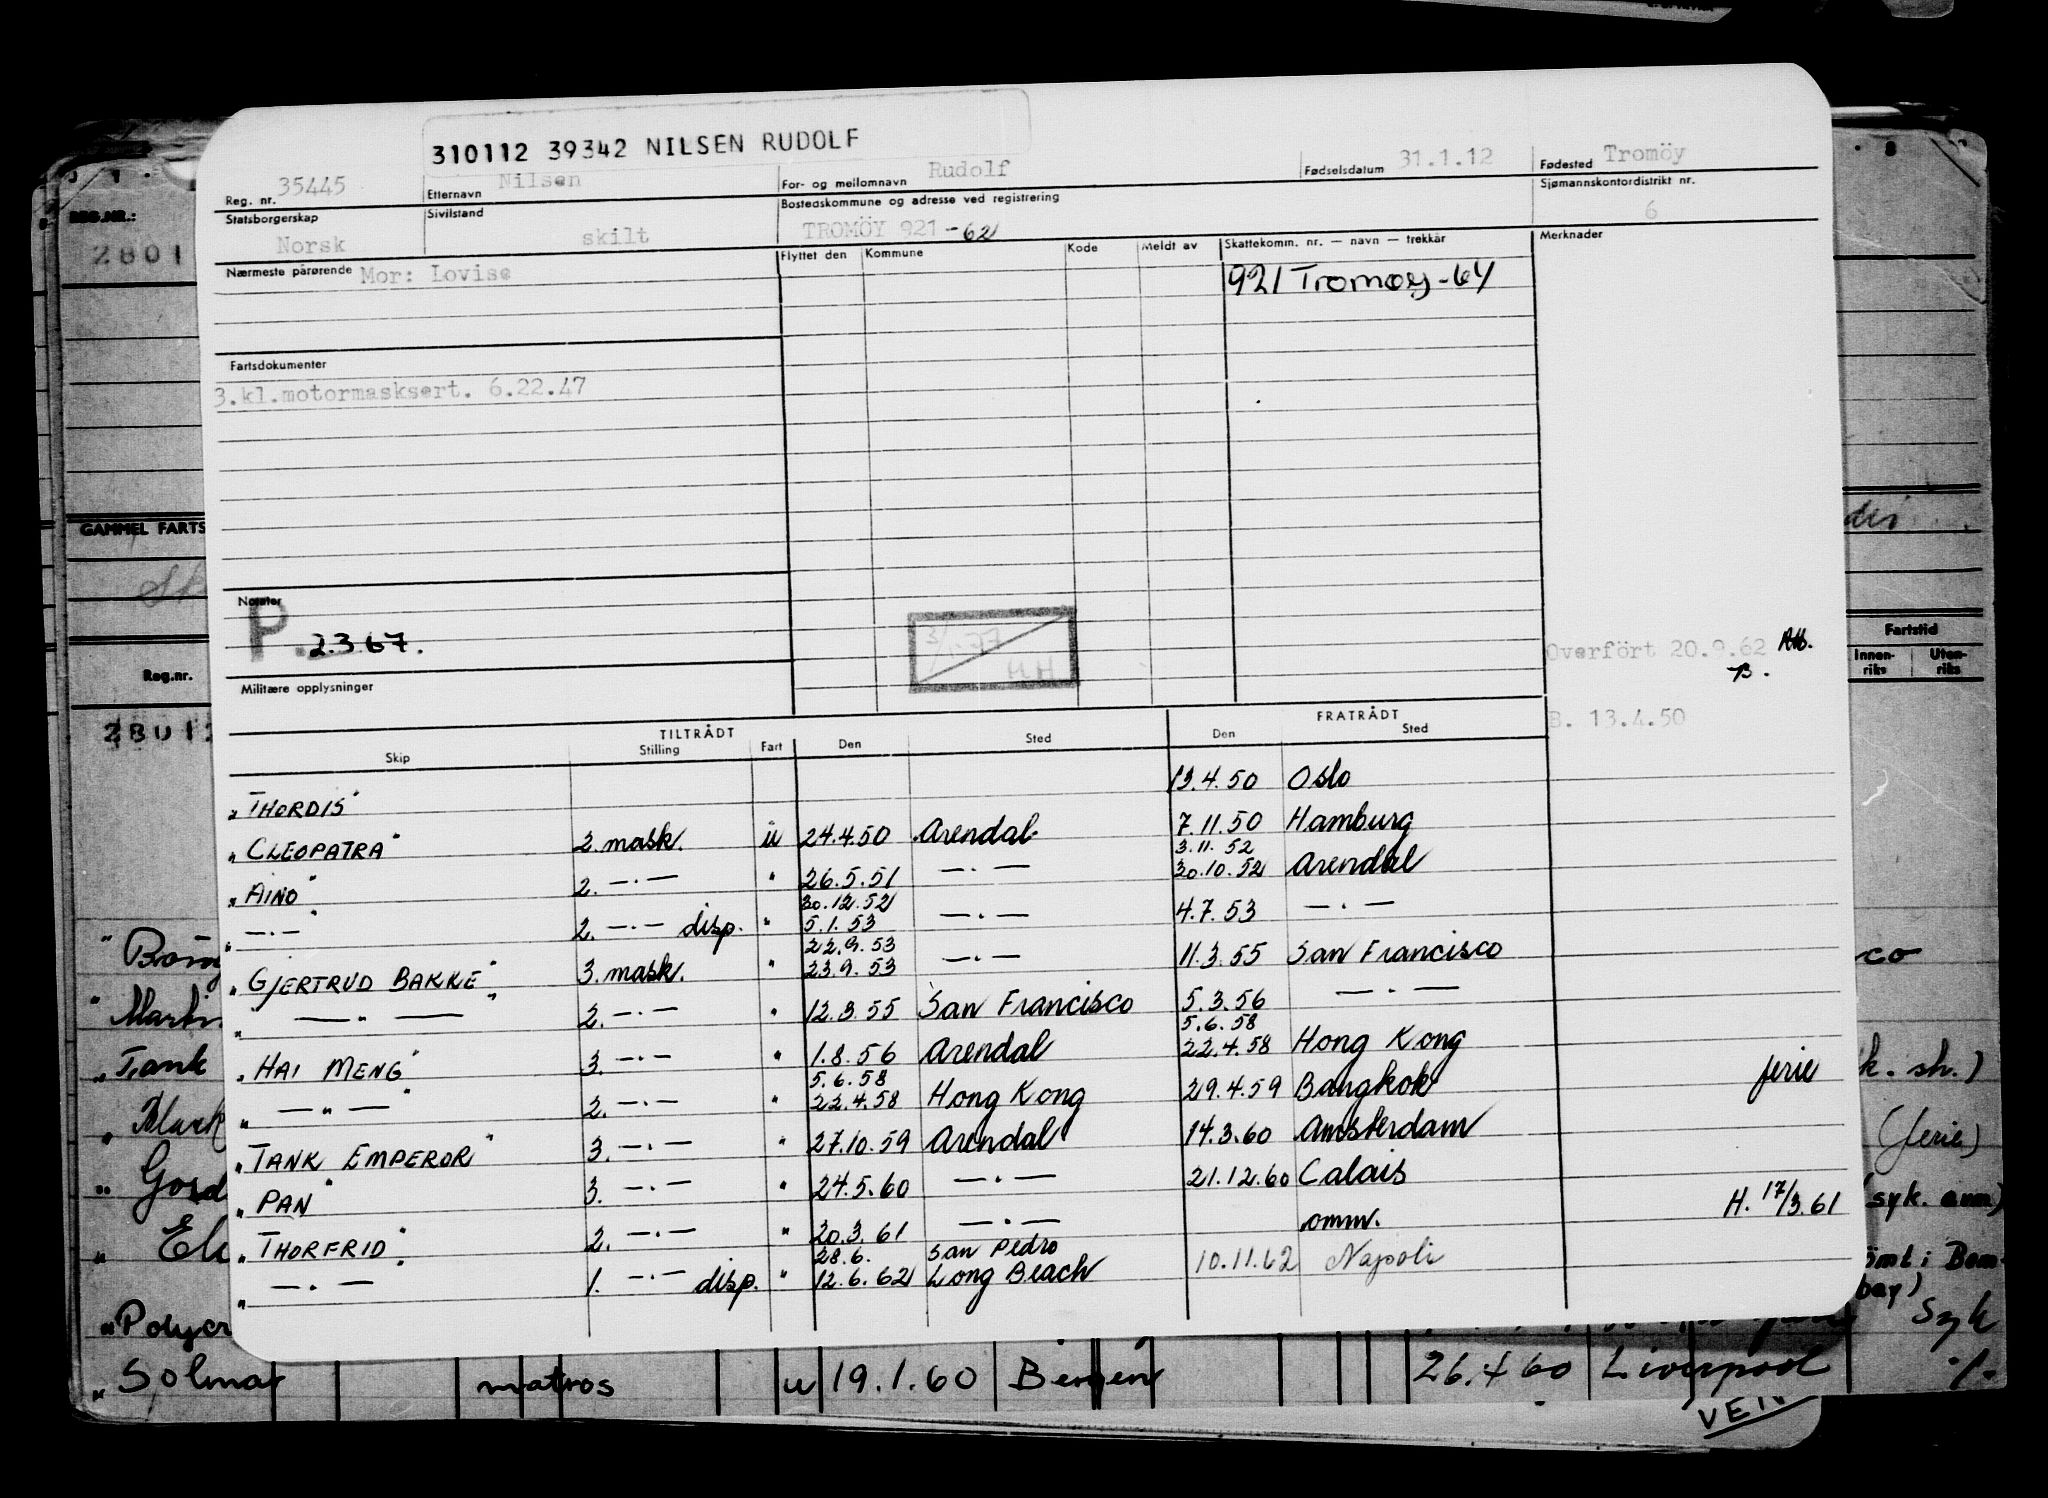 310112 39342 NILSEN RUDOLF
Reg. nr. 35445 Etternavn Nilsen For- og mellomnavn Rudolf Fødselsdatum 31.1.12 Fødested Tromöy
Statsborgerskap Norsk Sivilstand skilt Bostedskommune og adresse ved registrering TROMÖY 921 -62 Sjømannskontordistrikt nr. 6
Nærmeste pårørende Mor: Lovise Flyttet den Kommune Kode Meldt av Skattekomm. nr. — navn — trekkår Merknader
921 Tromøy-64
Fartsdokumenter
3.kl.motormasksert. 6.22.47
Notater
P. 2.3 67.
3/ -77 H.H
Overfört 20.9.62
B.
Militære opplysninger
B. 13.4.50
TILTRÅDT FRATRÅDT
Skip Stilling Fart Den Sted Den Sted
"THORDIS" 13.4.50 Oslo
"CLEOPATRA" 2. mask. u 24.4.50 Arendal 7.11.50 Hamburg
3.11.52
"AINO" 2. —.— " 26.5.51 —.— 30.10.52 Arendal
30.12.52
"—.—" 2. —.— disp. " 5.1.53 —.— 4.7.53 —.—
22.9.53
"GJERTRUD BAKKE" 3. mask. " 23.9.53 —.— 11.3.55 San Francisco
"— " —" 2. —.— " 12.3.55 San Francisco 5.3.56 —.—
5.6.58
"HAI MENG" 3. —.— " 1.8.56 Arendal 22.4.58 Hong Kong
5.6.58
"— " —" 2. —.— " 22.4.58 Hong Kong 29.4.59 Bangkok ferie
"TANK EMPEROR" 3. —.— " 27.10.59 Arendal 14.3.60 Amsterdam
"PAN" 3. —.— " 24.5.60 —.— 21.12.60 Calais
"THORFRID" 2. —.— " 20.3.61 —.— omm. H. 17/3.61
28.6. San Pedro
"—.—" 1. —.— disp. " 12.6.62 Long Beach 10.11.62 Napoli
REG.NR.:
2801
GAMMEL FARTS
Reg.nr.
Fartstid
Innen-riks Uten-riks
co
"Martin
"Tank k. sh.)
(ferie)
"Gord
syk. anm.)
ömt i Bom-
bay)
Syk
"Solmar matros u 19.1.60 Bergen 26.4 60 Liverpool